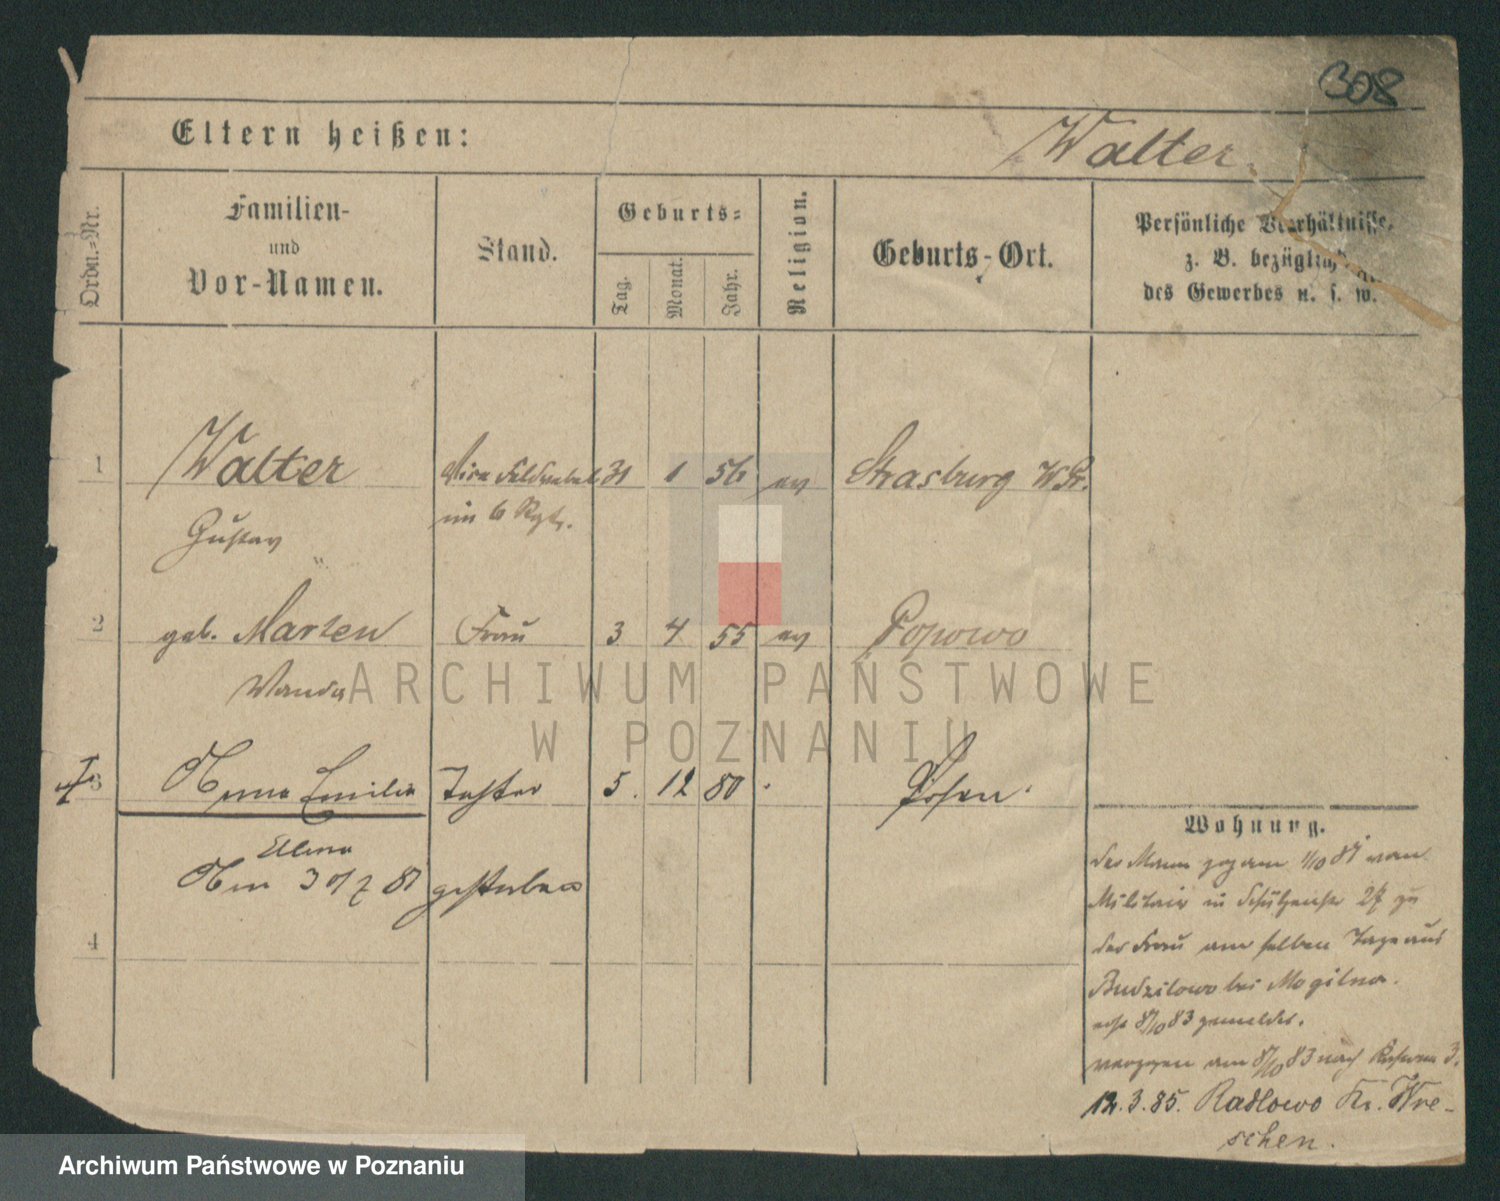 308
Eltern heißen:
Walter.
Ordn.-Nr.
Familien-
und
Vor-Namen.
Stand.
Geburts-
Tag.
Monat.
Jahr.
Religion.
Geburts-Ort.
Persönliche Verhältnisse,
z. B. bezüglich
des Gewerbes u. s. w.
1 Walter Vice Feldwebel 31 1 56 ev Strasburg W Pr.
Gustav im 6 Rgt.
2 geb. Marten Frau 3 4 55 ev Popowo
Wanda
3 Anna Emilie Tochter 5. 12 80 Posen.
Wohnung.
Am 30/7 81 gestorben
der Mann zog am 1/10 81 vom
Militair in Schützenstr 27 zu
4
der Frau am selben Tage aus
Budzilowo bei Mogilno.
erst 8/10 83 gemeldet.
verzogen am 8/10 83 nach 3.
12.3.85. Radlowo Kr. Wre-
schen.
ARCHIWUM PAŃSTWOWE
W POZNANIU
Archiwum Państwowe w Poznaniu